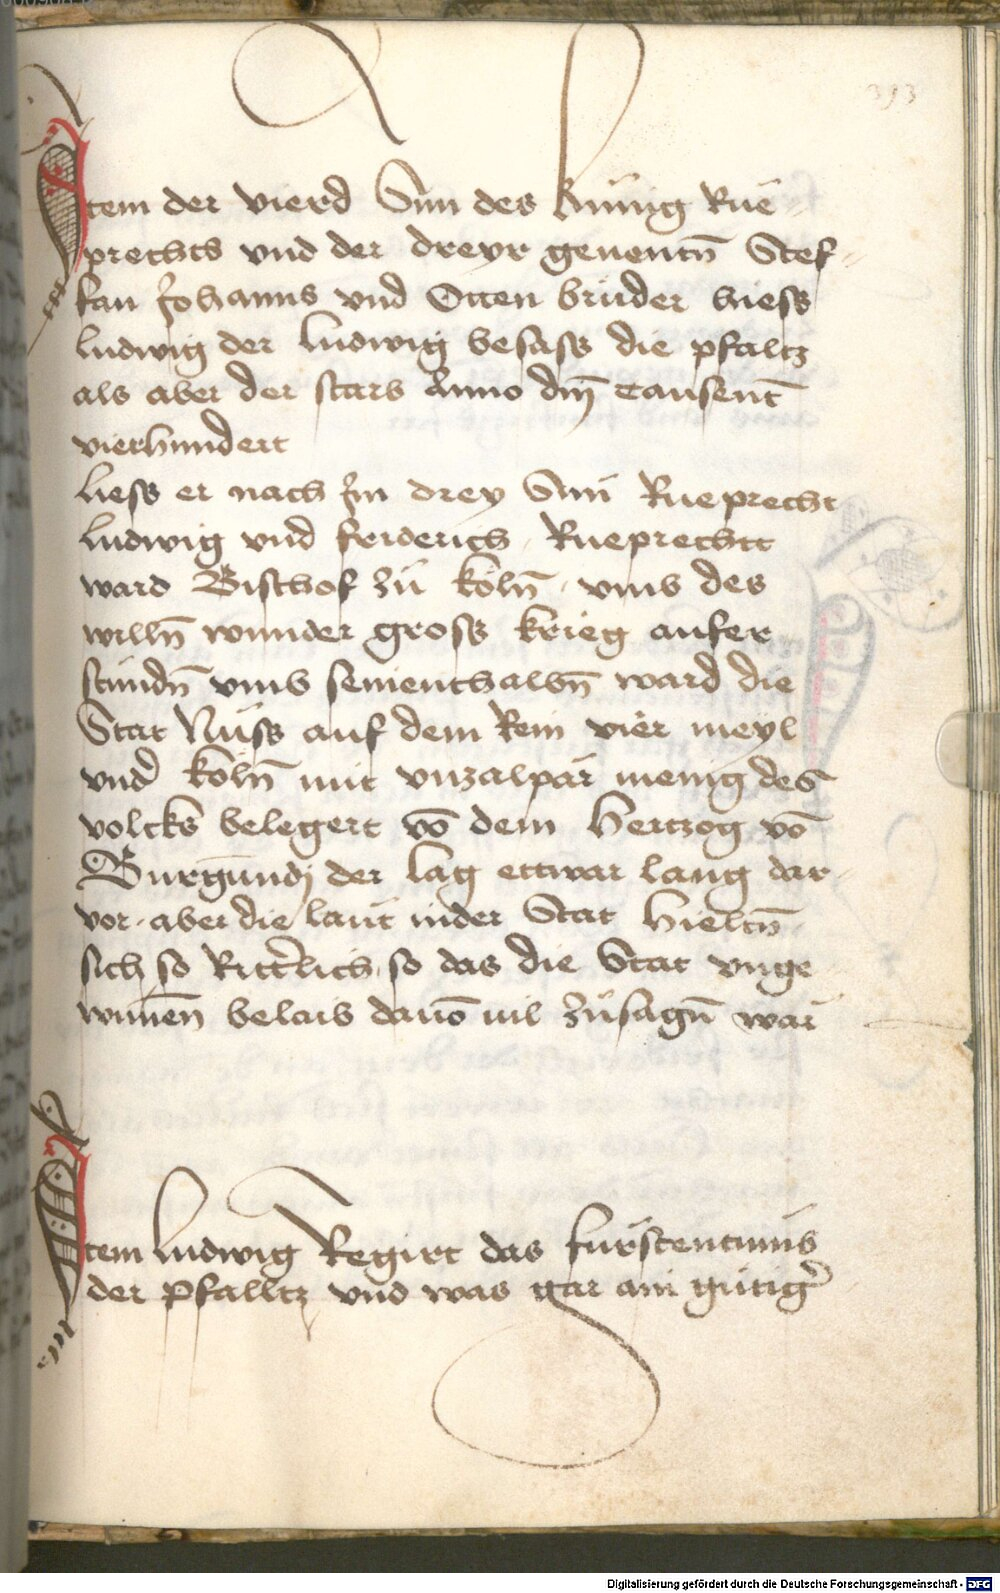 393
Item der vierd Sun des künig Rue
prechts vnd der dreyr genentn̄ Stef
fan Johanns vnd Otten brüder hiess
ludwig der ludwig besass die pfaltz
als aber der starb Anno dm̄ tausent
vierhundert
liess er nach Jm drey Sün Rueprecht
ludwig vnd friderich Rueprechtt
ward Bischof zu Köln̄ vmb des
willn̄ wunder gross krieg aufer
stündn̄ vmb sementhalbn̄ ward die
Stat Nüss auf dem Rein vier meyl
vnd köln̄ mit vnzalpar menig des
volcks belegert vō dem hertzog vō
Burgundj der lag ettwar lang dar
vor aber die laüt inder Stat hieltn̄
sich so Ritterlich so das die Stat vnge
wunnen belaib dauō uil zusagn̄ wär
Item ludwig Regirt das fürstentumb
der Pfalltz vnd was gar ain gütiger
Digitalisierung gefördert durch die Deutsche Forschungsgemeinschaft - DFG